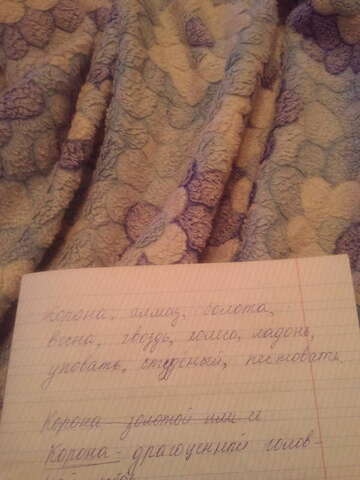 корона, алмаз, болота,
весна, гвоздь, колесо, ладонь,
уповать, студёный, пестовать.
Корона золотой или се
Корона - драгоценный голов-
ной убор